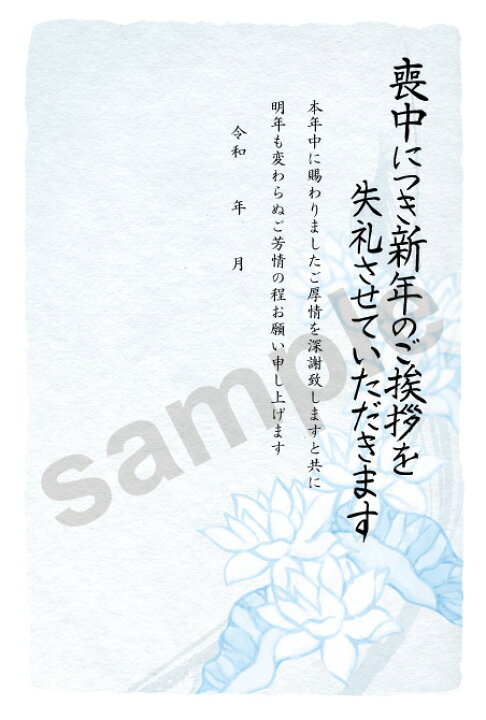 喪中につき新年のご挨拶を
失礼させていただきます
本年中に賜わりましたご厚情を深謝致しますと共に
明年も変わらぬご芳情の程お願い申し上げます
令和　年　月
sample